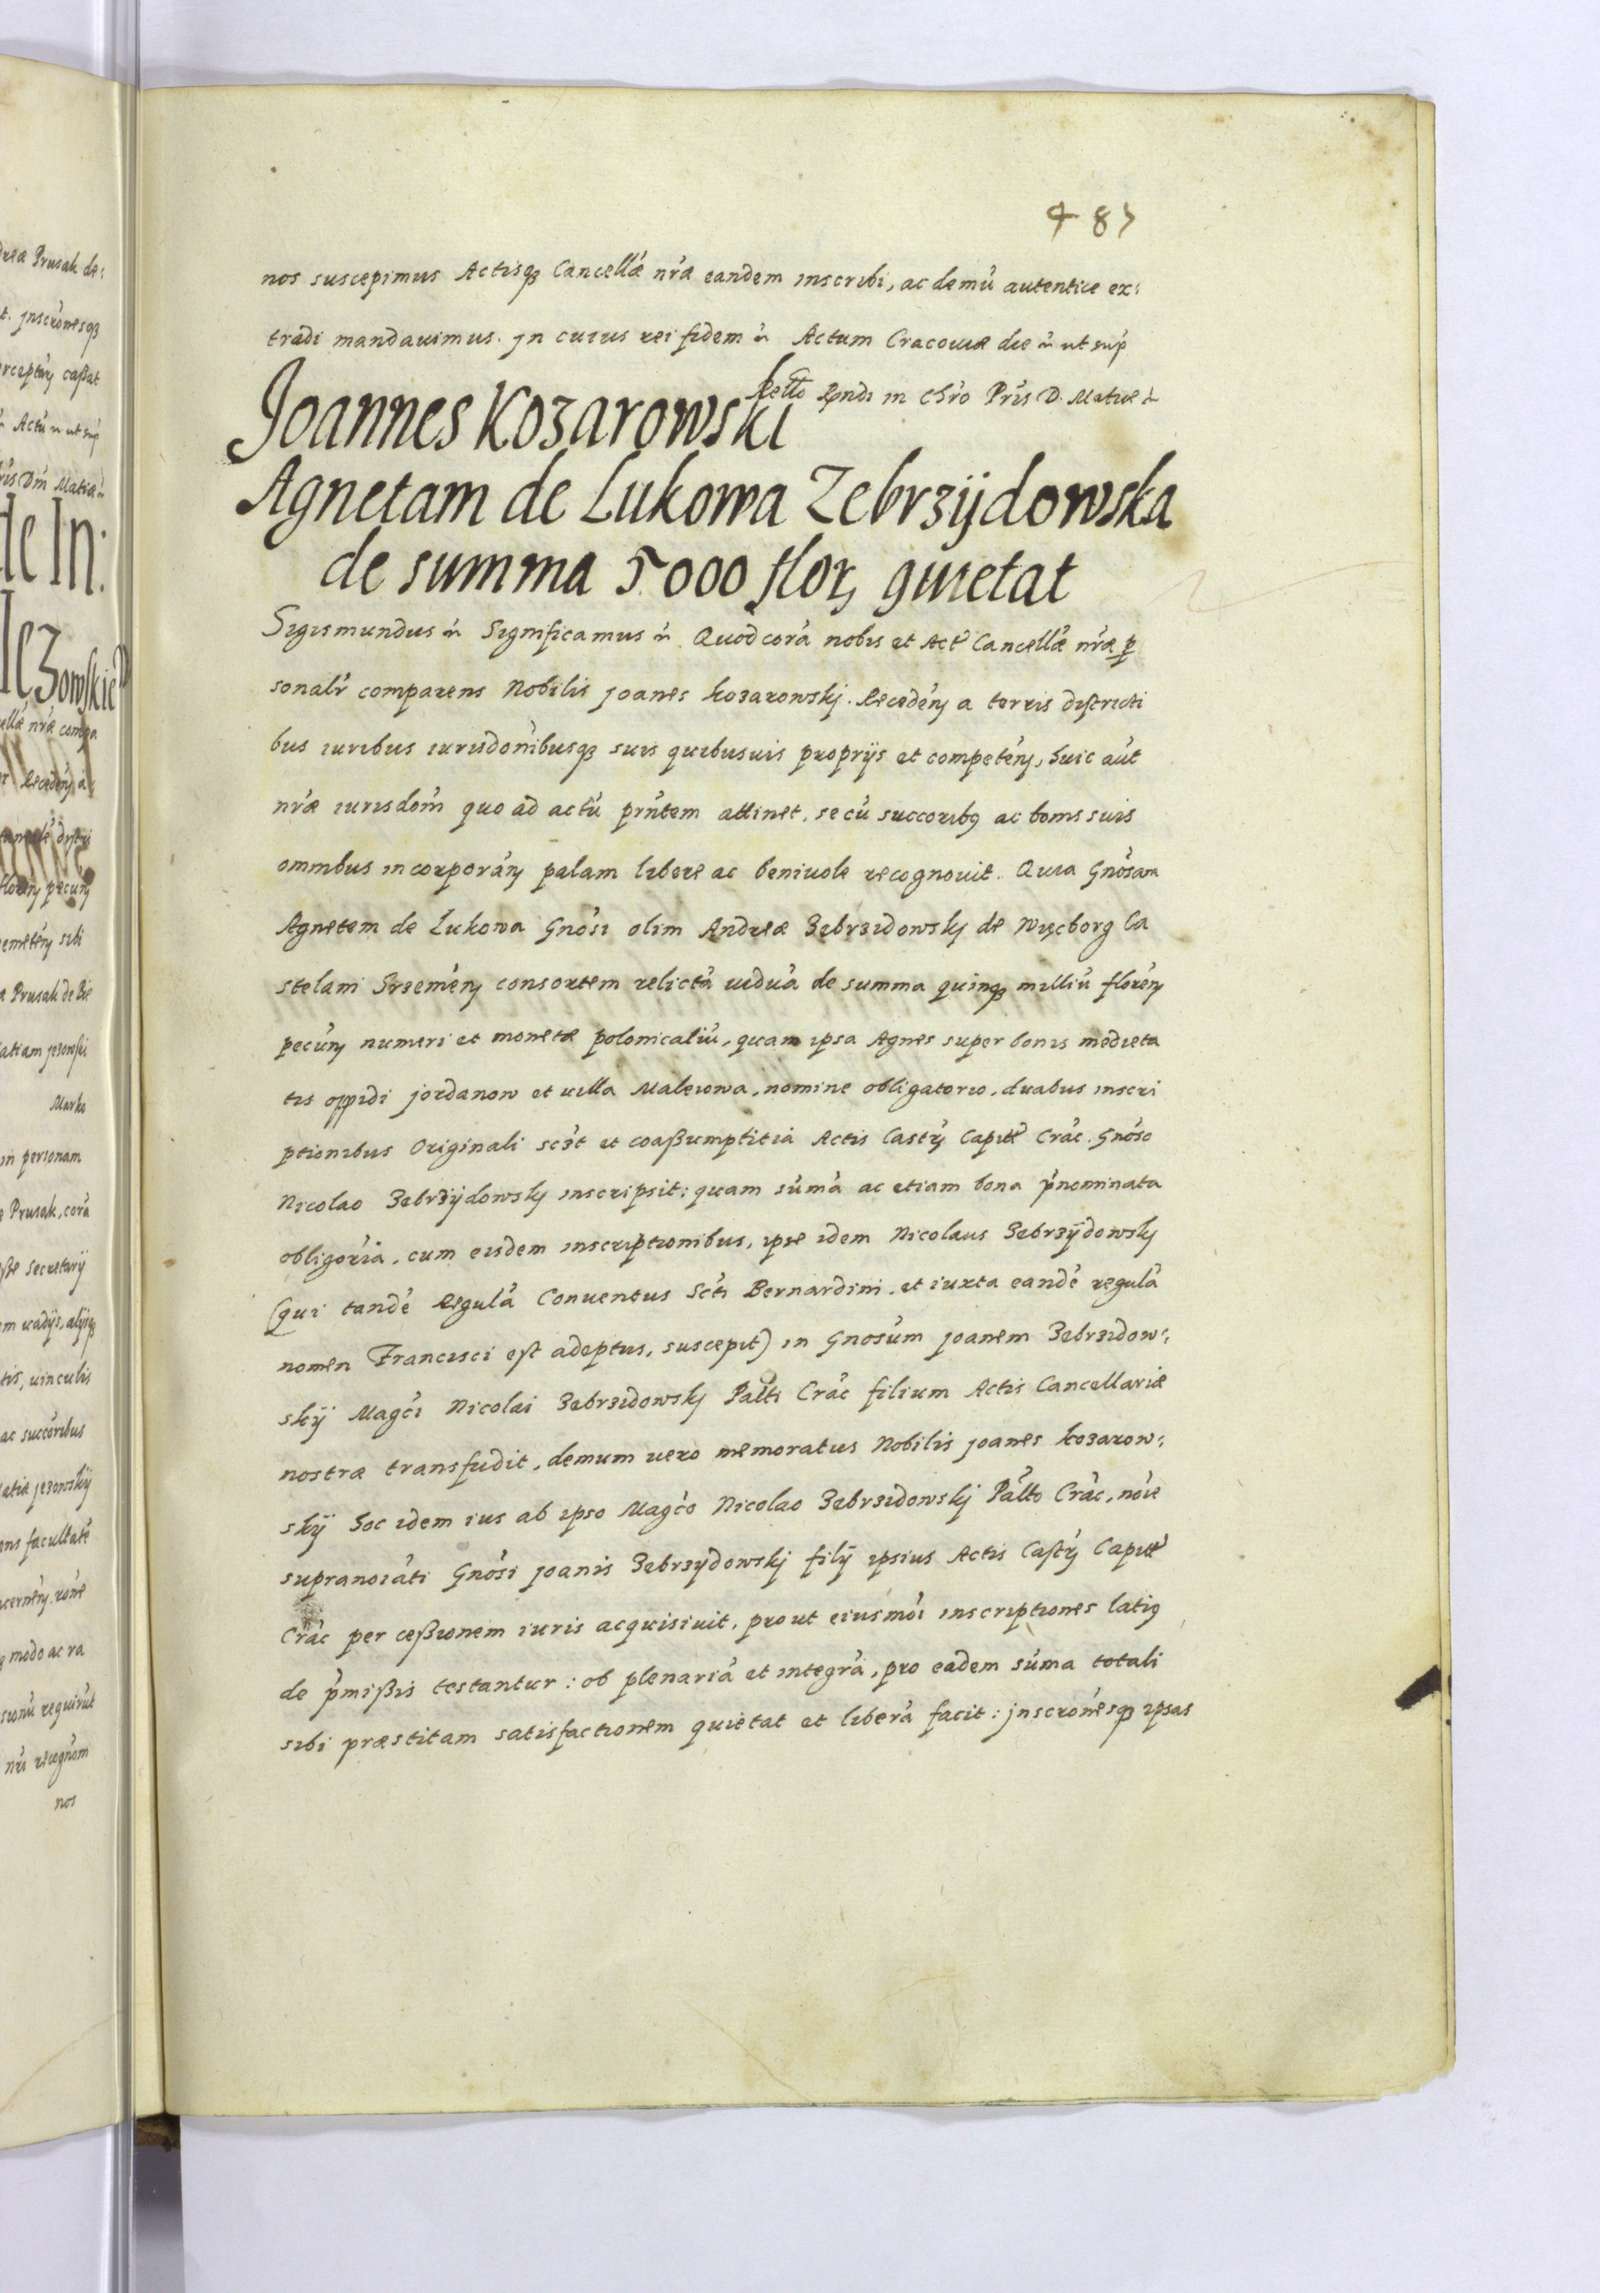 487
nos suscepimus Actisq3 Cancellæ nr̃æ eandem inscribi, ac demũ autentice ex:
tradi mandauimus. Jn cuius rei fidem ñ Actum Cracouiæ die ñ ut sup̃
Rello Rndi in Chr̃o Pr̃is D. Mathiæ ñ
Joannes Kozarowski
Agnetam de Lukowa Zebrzÿdowska
de summa 5000 flor, quietat
Sigismundus ñ Significamus ñ Quod corã nobis et Act Cancellæ nr̃æ p
sonalr̃ comparens Nobilis Joanes Kozarowskj. Recedeñ a terris districti
bus iuribus iurisdonibusq3 suis quibusuis proprijs et competeñ, huic aũt
nr̃æ iurisdom̃ quo ad actũ prñtem attinet, se cũ succoribq ac bonis suis
omnibus incorporañ palam libere ac beniuole recognouit. Quia Gnõsam
Agnetem de Lukowa Gnõsi olim Andreæ Zebrzidowskj de Więcborg Ca
stelani Srzemeñ consortem relictã uiduã de summa quinq3 milliũ floreñ
pecuñ numeri et monetæ polonicaliũ, quam ipsa Agnes super bonis medieta
tis oppidi Jordanow et uilla Maleiowa, nomine obligatorio, duabus inscri
ptionibus Originali sczt et coaßumptitia Actis Castr̃ Capitt Crac̃. Gnõso
Nicolao Zebrzÿdowskj inscripsit: quam sũmã ac etiam bona p̃nominata
obligor̃ia, cum eisdem inscriptionibus, ipse idem Nicolaus Zebrzÿdowskj
(qui tandẽ Regulã Conuentus Scti Bernardini, et iuxta eandẽ regulã
nomen Francisci est adeptus, suscepit) in Gnosũm Joanem Zebrzidow:
skÿ Magci Nicolai Zebrzidowskj Palti Crac̃ filium Actis Cancellariæ
nostræ transfudit, demum uero memoratus Nobilis Joanes Kozarow:
skÿ hoc idem ius ab ipso Magco Nicolao Zebrzidowskj Palto Crac̃, noĩe
supranoiãti Gnõsi Joanis Zebrzÿdowskj filÿ ipsius Actis Castr̃ Capitt
Crac̃ per ceßionem iuris acquisiuit, prout eiusmõi inscriptiones latiq
de p̃mißis testantur: ob plenariã et integrã, pro eadem sũma totali
sibi præstitam satisfactionem quietat et liberã facit: Jnscronesq3 ipsas